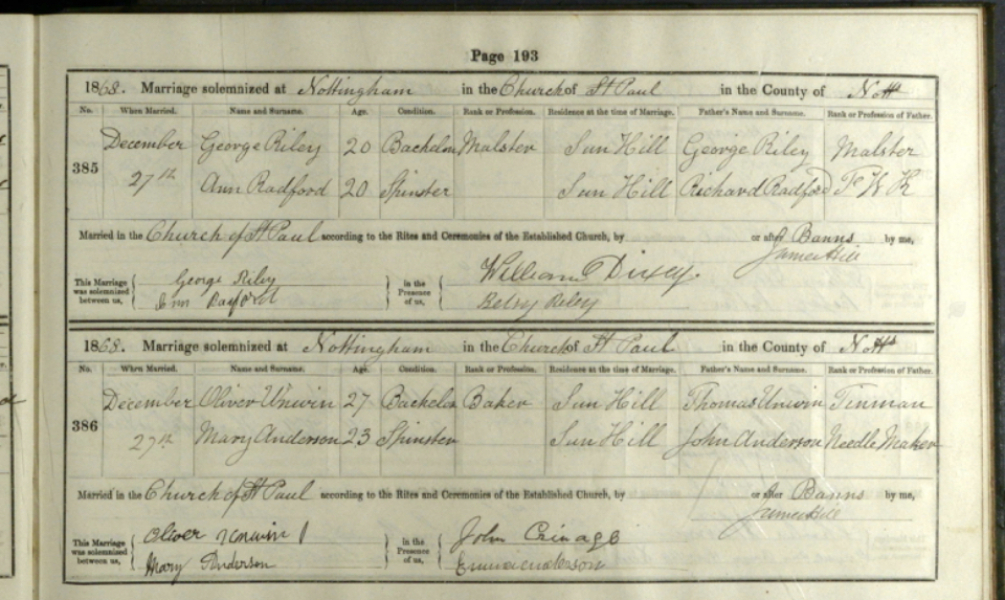 Page 193
1868. Marriage solemnized at Nottingham in the Church of St Paul in the County of Nott
No. When Married. Name and Surname. Age. Condition. Rank or Profession. Residence at the time of Marriage. Father's Name and Surname. Rank or Profession of Father.
385 December George Riley 20 Bachelor Malster Sun Hill George Riley Malster
27th Ann Radford 20 Spinster Sun Hill Richard Radford F W K
Married in the Church of St Paul according to the Rites and Ceremonies of the Established Church, by or after Banns by me,
James Hill
This Marriage was solemnized between us, George Riley in the Presence of us, William Dixey
Ann Radford Betsy Riley
1868. Marriage solemnized at Nottingham in the Church of St Paul in the County of Notts
No. When Married. Name and Surname. Age. Condition. Rank or Profession. Residence at the time of Marriage. Father's Name and Surname. Rank or Profession of Father.
386 December Oliver Unwin 27 Bachelor Baker Sun Hill Thomas Unwin Tinman
27th Mary Anderson 23 Spinster Sun Hill John Anderson Needle Maker
Married in the Church of St Paul according to the Rites and Ceremonies of the Established Church, by or after Banns by me,
James Hill
This Marriage was solemnized between us, Oliver Unwin in the Presence of us, John Crinage
Mary Anderson Emma Anderson